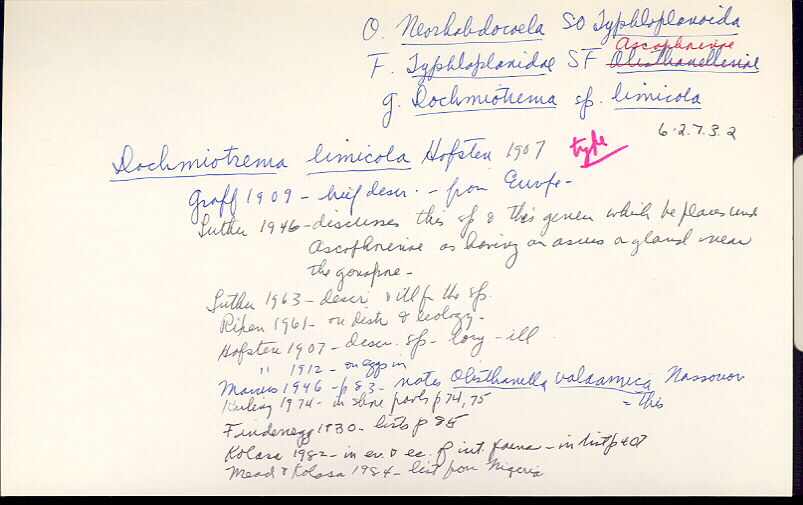 O. Neorhabdocoela SO Typhloplanoida
Ascophorinae
F. Typhloplanidae SF Olisthanellinae
g. Dochmiotrema sp. limicola
6.2.7.3.2
Dochmiotrema limicola Hofsten 1907 type
Graff 1909 - brief descr. - from Europe -
Luther 1946 - discusses this sp & this genus which he places und
Ascophorinae as having an ascus a gland near
the gonopore -
Luther 1963 - descr & ill for the sp.
Rixen 1961 - on distr & ecology -
Hofsten 1907 - descr. sp - long - ill
" 1912 - on eggs in
Marcus 1946 - p 83 - notes Olisthanella valaamica Nassonov
= this
Karling 1974 - in shore pools p 74, 75
Findenegg 1930 - lists p 85
Kolasa 1982 - in ev. & ec. of int. fauna - in list p 407
Mead & Kolasa 1984 - list from Nigeria